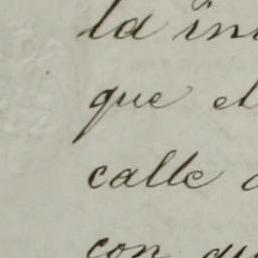 la in
que el
calle
con qu